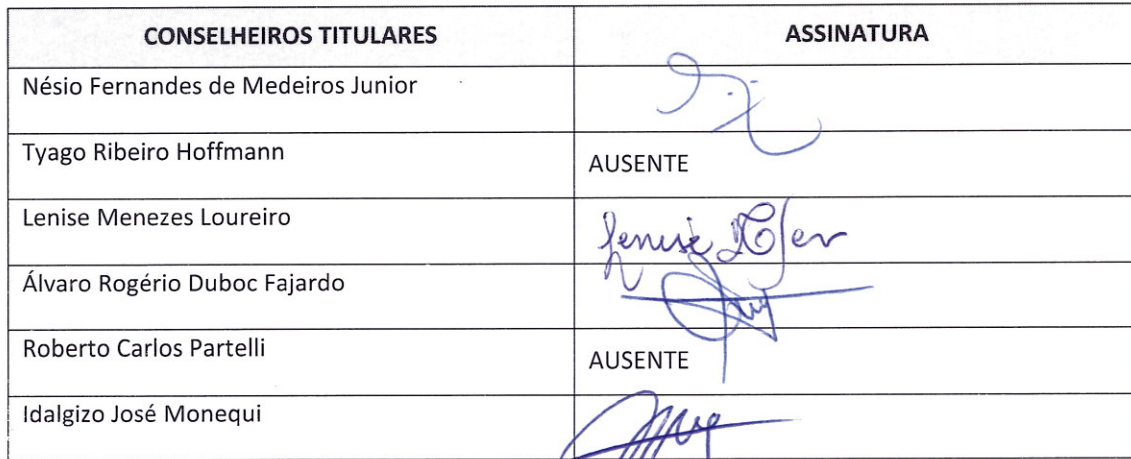 CONSELHEIROS TITULARES ASSINATURA
Nésio Fernandes de Medeiros Junior
Tyago Ribeiro Hoffmann AUSENTE
Lenise Menezes Loureiro Lenise
Álvaro Rogério Duboc Fajardo
Roberto Carlos Partelli AUSENTE
Idalgizo José Monequi